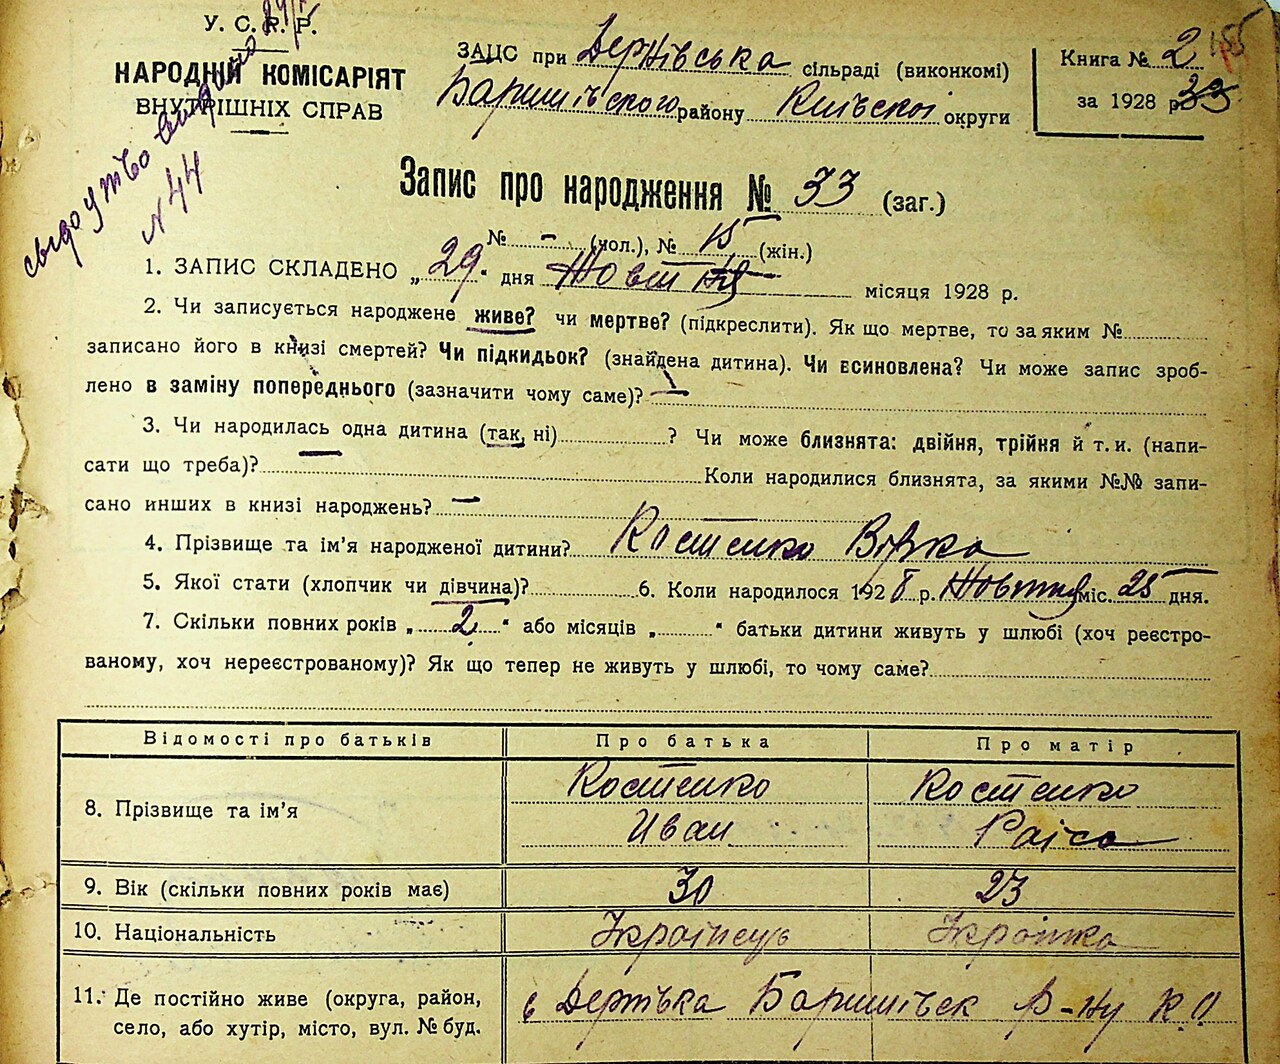 У. С. Р. Р.
НАРОДНІЙ КОМІСАРІЯТ
ВНУТРІШНІХ СПРАВ
№ 44
ЗАЦС при Дернівська сільраді (виконкомі)
Баришівського району Київскої округи
Книга № 2 155
за 1928 р. 33
Запис про народження № 33 (заг.)
№ - (чол.), № 15 (жін.)
1. ЗАПИС СКЛАДЕНО „29“ дня Жовтня місяця 1928 р.
2. Чи записується народжене живе? чи мертве? (підкреслити). Як що мертве, то за яким №
записано його в книзі смертей? Чи підкидьок? (знайдена дитина). Чи всиновлена? Чи може запис зроб-
лено в заміну попереднього (зазначити чому саме)? —
3. Чи народилась одна дитина (так, ні) ? Чи може близнята: двійня, трійня й т. и. (напи-
сати що треба)? — Коли народилися близнята, за якими №№ запи-
сано инших в книзі народжень? —
4. Прізвище та ім'я народженої дитини? Костенко Вірка
5. Якої стати (хлопчик чи дівчина)? 6. Коли народилося 1928 р. Жовтня міс. 25 дня.
7. Скільки повних років „2“ або місяців „ “ батьки дитини живуть у шлюбі (хоч реєстро-
ваному, хоч нереєстрованому)? Як що тепер не живуть у шлюбі, то чому саме?
Відомості про батьків Про батька Про матір
8. Прізвище та ім'я Костенко Иван Костенко Раіса
9. Вік (скільки повних років має) 30 23
10. Національність Україньць Украінка
11. Де постійно живе (округа, район, с Дернівка Баришівськ Р-ну К.О
село, або хутір, місто, вул. № буд.